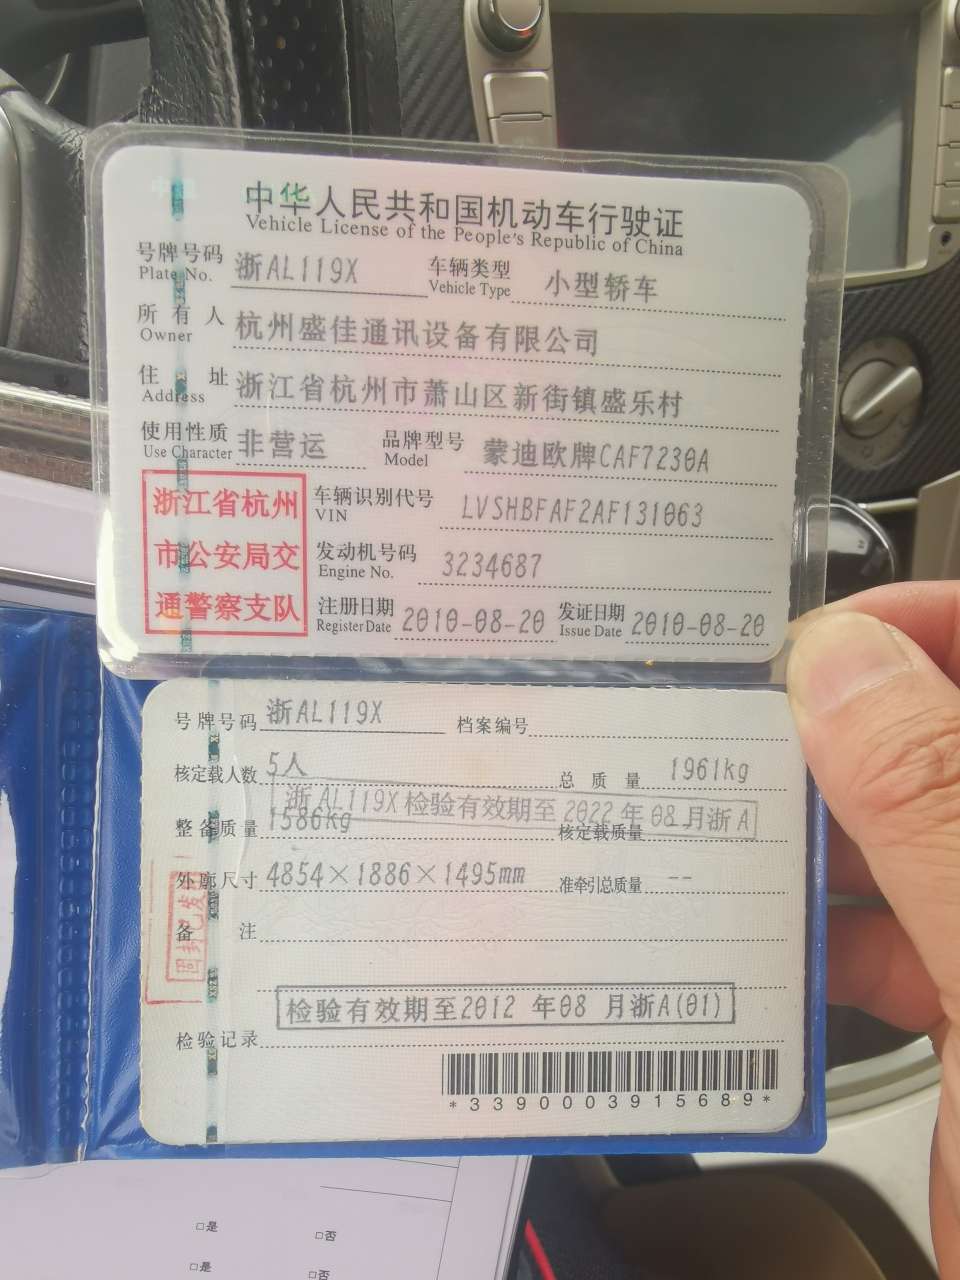 中华人民共和国机动车行驶证
Vehicle License of the People's Republic of China
号牌号码 浙AL119X 车辆类型 小型轿车
Plate No. Vehicle Type
所有人 杭州盛佳通讯设备有限公司
Owner
住址 浙江省杭州市萧山区新街镇盛乐村
Address
使用性质 非营运 品牌型号 蒙迪欧牌CAF7230A
Use Character Model
浙江省杭州
市公安局交
通警察支队
车辆识别代号 LVSHBFAF2AF131063
VIN
发动机号码 3234687
Engine No.
注册日期 2010-08-20 发证日期 2010-08-20
Register Date Issue Date
号牌号码 浙AL119X 档案编号
核定载人数 5人 总质量 1961kg
浙AL119X检验有效期至2022年08月浙A
整备质量 1586kg 核定载质量 --
外廓尺寸 4854×1886×1495mm 准牵引总质量 --
备注
检验有效期至2012 年08 月浙A(01)
检验记录
*3390003915689*
□是 □否
□是 □否